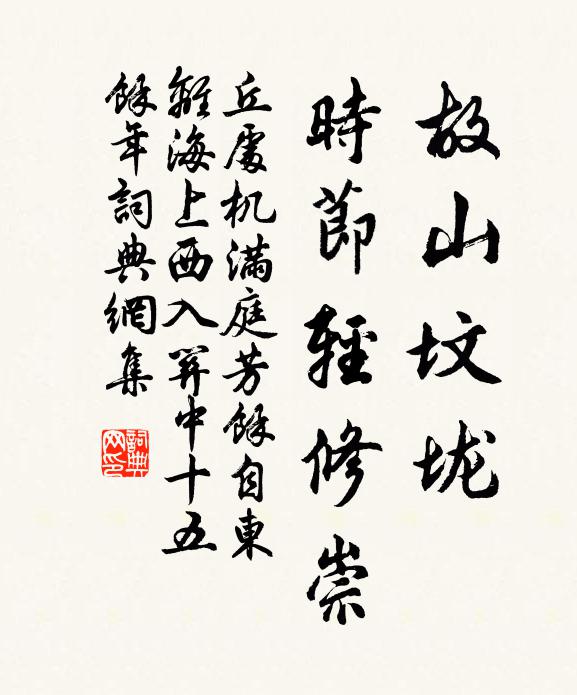 故山坟垅
時節輕修崇
丘處机滿庭芳餘自東
離海上西入關中十五
餘年詞典網集
詞典网印